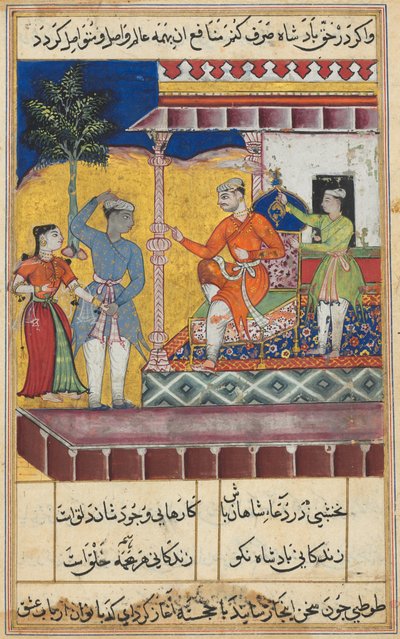 واکر در حق بادشاه صرف کنم منافع ان بهمه عالم واصل و متواصل کردد
نخشبی در دعاء شاهان باش کارهایی وجود شان
زندکانی بادشاه نکو زندکانی هر همه خلق است
طوطی چون سخن اینجا رسانید با خجسته آغاز کرد ای کدبانو از ارباب عشق